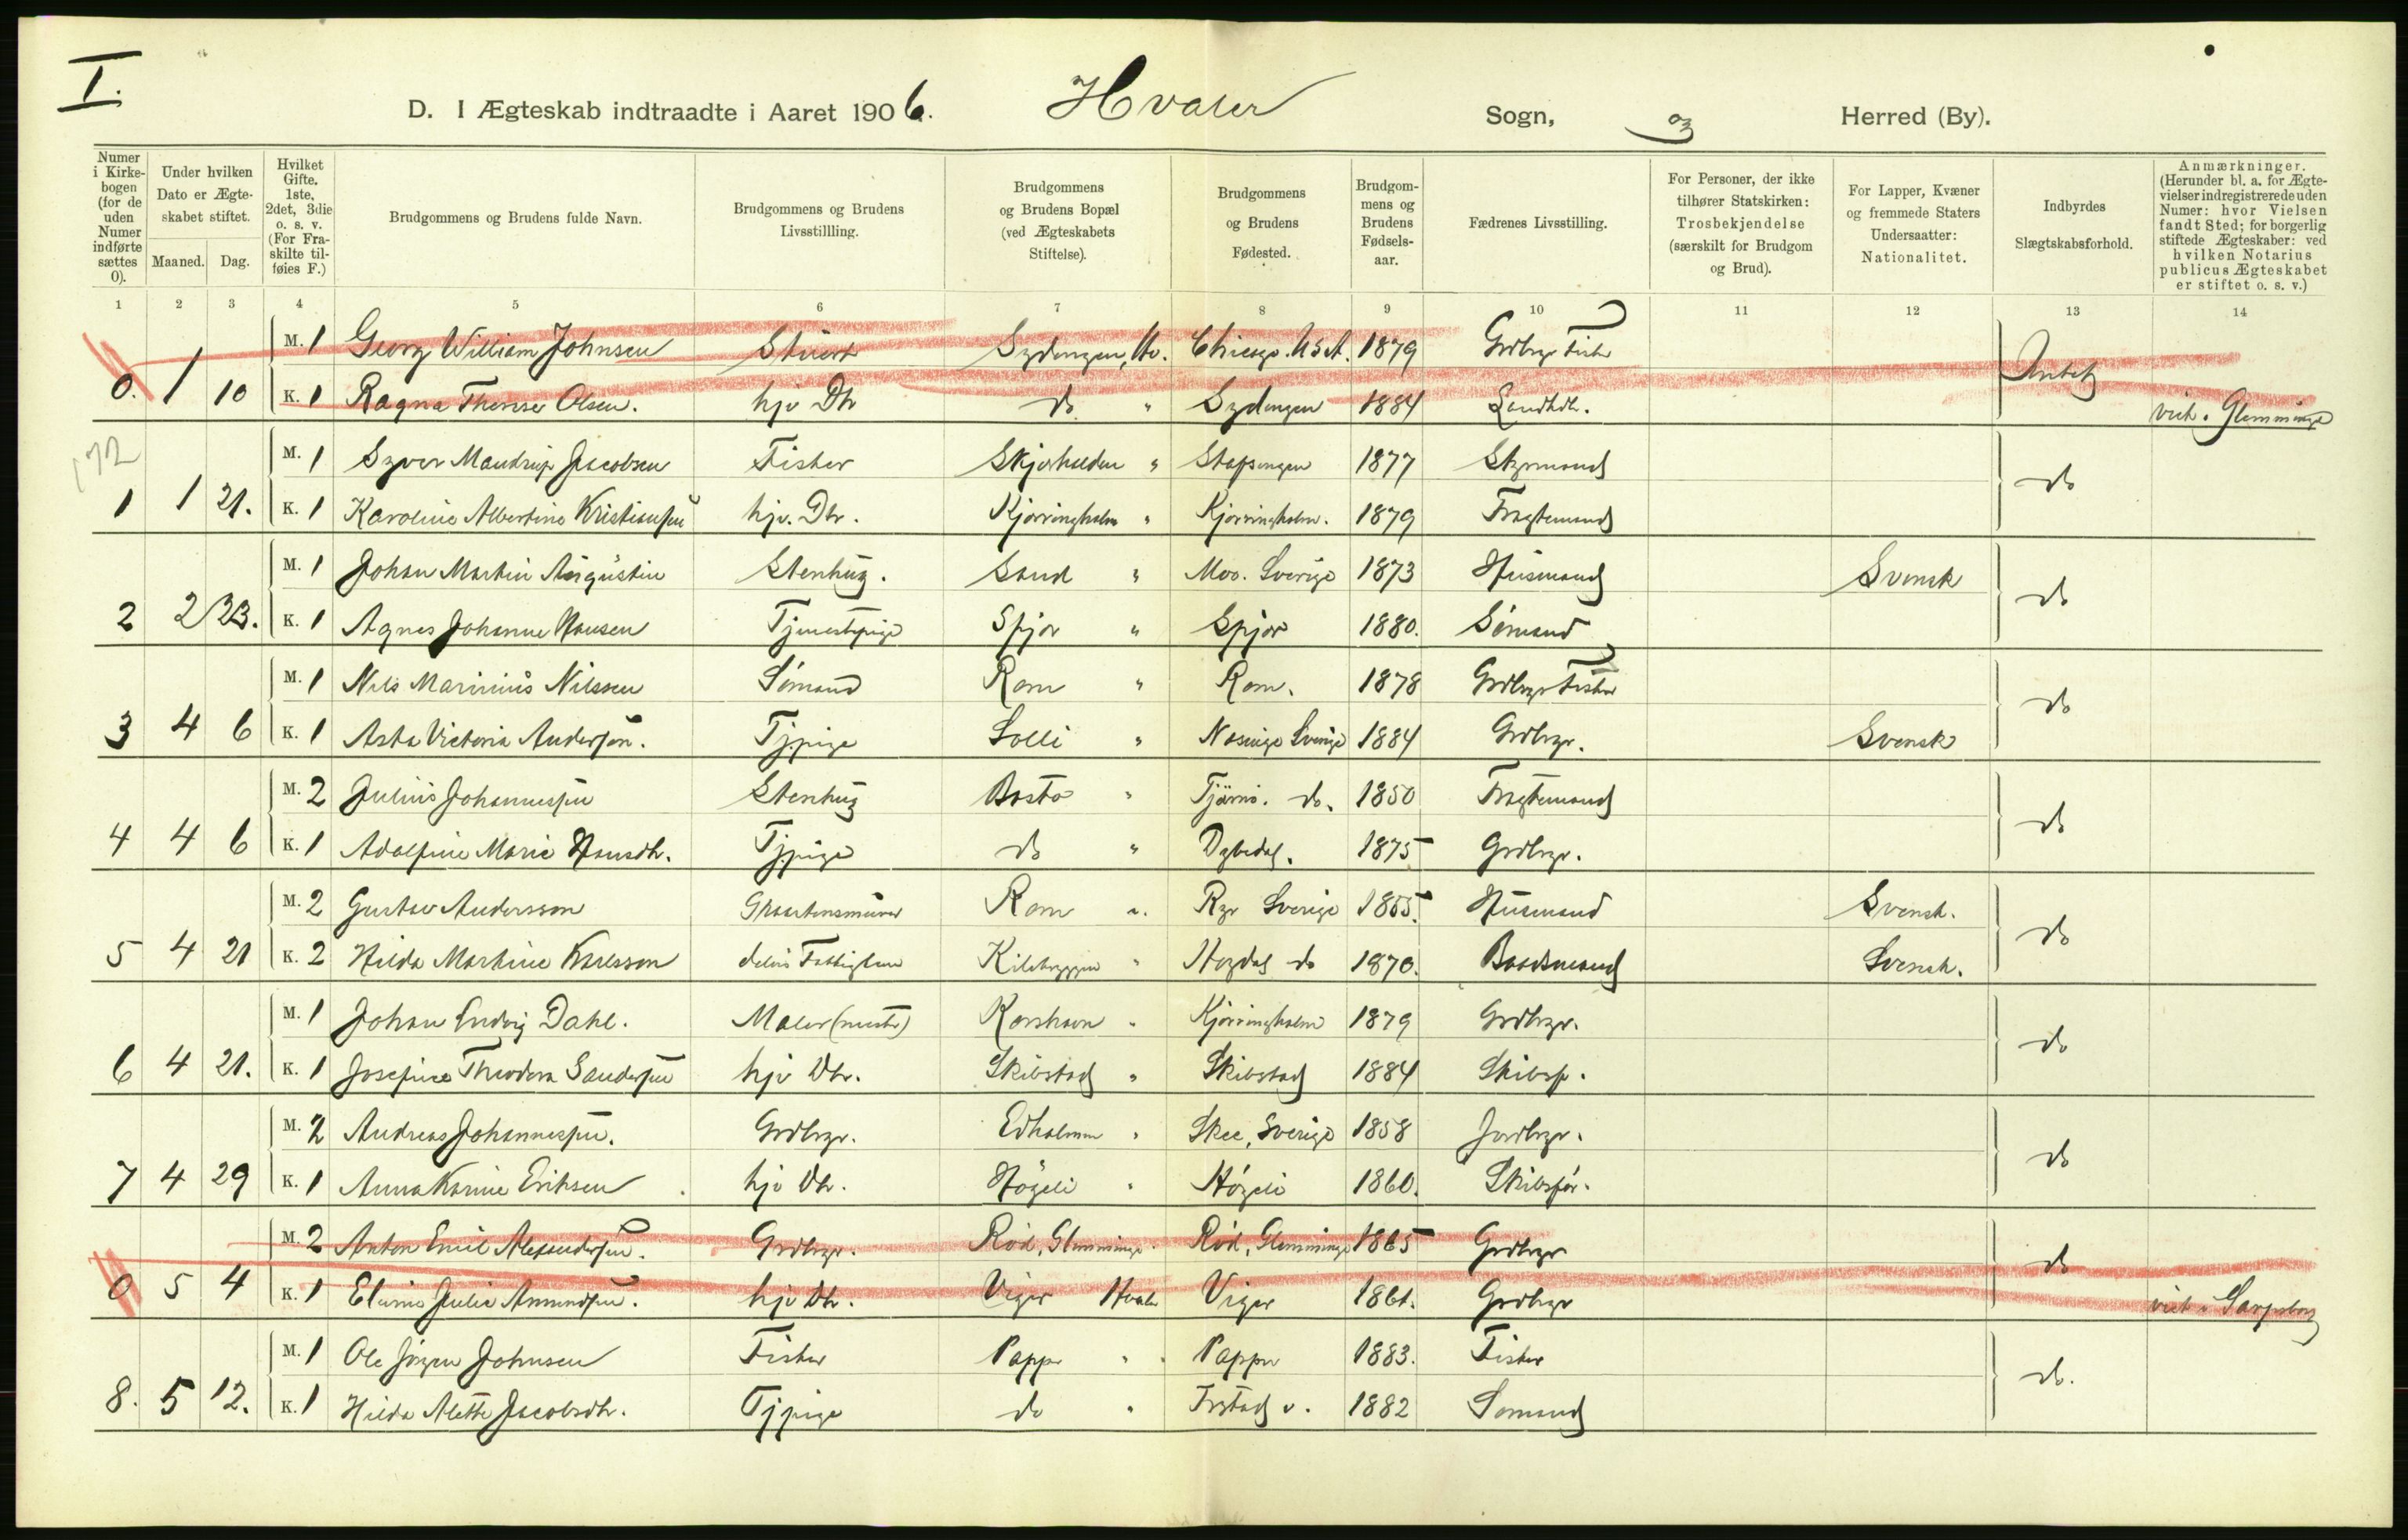 I.
D. I Ægteskab indtraadte i Aaret 1906. Hvaler Sogn, og Herred (By).
Numer i Kirkebogen (for de uden Numer indførte sættes 0).
Under hvilken Dato er Ægteskabet stiftet.
Maaned. Dag.
Hvilket Gifte. 1ste, 2det, 3die o. s. v. (For Fraskilte tilføies F.)
Brudgommens og Brudens fulde Navn.
Brudgommens og Brudens Livsstillling.
Brudgommens og Brudens Bopæl (ved Ægteskabets Stiftelse).
Brudgommens og Brudens Fødested.
Brudgommens og Brudens Fødselsaar.
Fædrenes Livsstilling.
For Personer, der ikke tilhører Statskirken: Trosbekjendelse (særskilt for Brudgom og Brud).
For Lapper, Kvæner og fremmede Staters Undersaatter: Nationalitet.
Indbyrdes Slægtskabsforhold.
Anmærkninger. (Herunder bl. a. for Ægtevielser indregistrerede uden Numer: hvor Vielsen fandt Sted; for borgerlig stiftede Ægteskaber: ved hvilken Notarius publicus Ægteskabet er stiftet o. s. v.)
1 2 3 4 5 6 7 8 9 10 11 12 13 14
M. 1 Georg William Johnsen Chicago. U.S.A. 1879 Grdbrgr Fisker
0. 1 10 K. 1 Ragna Therese Olsen. hjv Dtr do " 1884 Landhdl. viet i Glemminge
172
M. 1 Syver Mandrup Jacobsen Fisker " 1877 Styrmand
1 1 21. K. 1 Karoline Albertine Kristiansen hjv. Dtr. Kjørringholm " Kjørringholm. 1879 Fragtemand do
M. 1 Johan Martin Augustin Stenhug. Sand " Moo. Sverige 1873 Husmand Svensk
2 2 23. K. 1 Agnes Johanne Hansen Tjenestepige Spjær " Spjær 1880. Sømand do
M. 1 Nils Marinius Nilssen Sømand Rom " Rom. 1878 Grdbrgr Fisker
3 4 6 K. 1 Asta Victoria Andersen. Tjpige Lolli " Nasinge Sverige 1884 Grdbrgr. Svensk do
M. 2 Julius Johannessen Stenhug Basto " Tjärnö. do. 1850 Fragtemand
4 4 6 K. 1 Adolfine Marie Hansdtr. Tjpige do " Dybedal. 1875 Grdbrgr. do
M. 2 Gustav Andersson Rom " Sverige 1855. Husmand Svensk.
5 4 21 K. 2 Hilda Martine Karlsson Kilebryggen " Hogdal do 1870. Baadsmand Svensk. do
M. 1 Johan Ludvig Dahl. Maler (mester) Korshavn " Kjørringholm 1879 Grdbrgr.
6 4 21. K. 1 Josefine Theodora Sandersen hjv Dtr. Skibstad " Skibstad 1884 Skibsf. do
M. 2 Andreas Johannessen. Grdbrgr. Edholmen " Skee, Sverige 1858 Jordbrgr.
7 4 29 K. 1 Anna Karine Eriksen hjv Dtr. " 1860. Skibsfør. do
M. 2 Anton Emil Alexandersen. Grdbrgr. Rød, Glemminge. Rød, Glemminge 1865 Grdbrgr
0 5 4 K. 1 Julie Amundsen. hjv Dtr. Viger Hvaler Viger 1861. Grdbrgr do viet i Sarpsborg
M. 1 Ole Jörgen Johnsen Fisker Papper " Papper 1883. Fisker
8. 5 12. K. 1 Hilda Alette Jacobsdtr. Tjpige do " 1882 Sømand do.